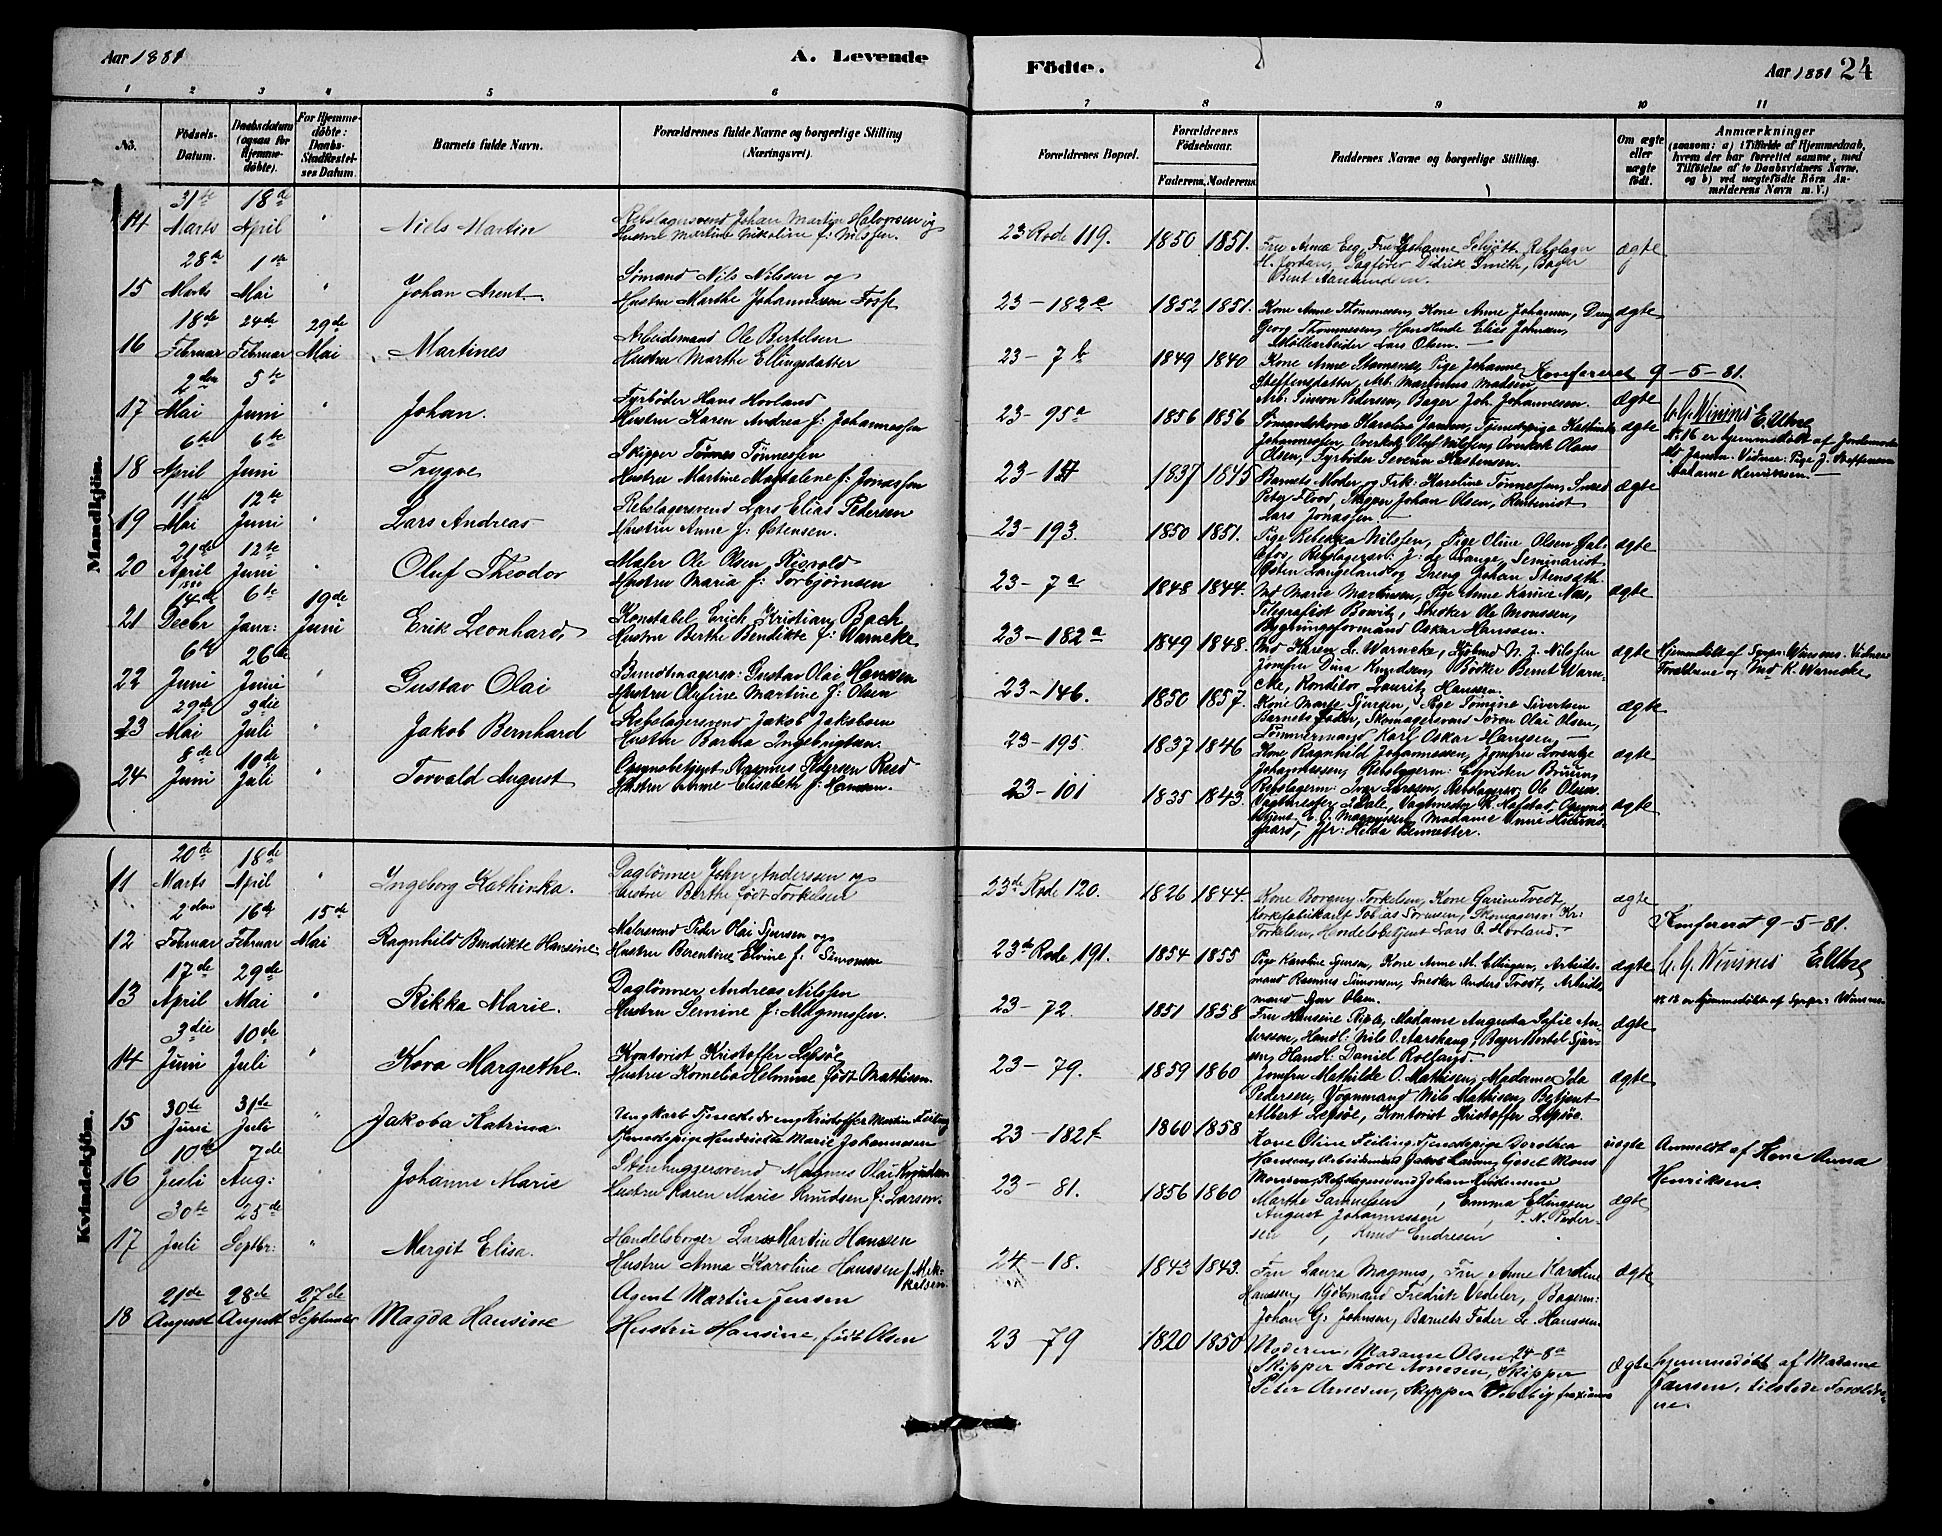 Aar 1881
A. Levende
Födte.
Aar 1881 24
1 2 3 4 5 6 7 8 9 10 11
No. Födsels-Datum. Daabsdatum (ogsaa for Hjemme-døbte). For Hjemme-døbte: Daabs-Stadfæstel-ses Datum. Barnets fulde Navn. Forældrenes fulde Navne og borgerlige Stilling (Næringsvei). Forældrenes Bopæl. Forældrenes Födselsaar. Faderens. Moderens. Faddernes Navne og borgerlige Stilling. Om ægte eller uægte født. Anmærkninger
(saasom: a) i Tilfælde af Hjemmedaab, hvem der har forrettet samme, med Tilföielse af to Daabsvidners Navne, og b) ved uægtefødte Börn Anmelderens Navn m. V.)
Mandkjön.
14 31te Marts 18de April " Niels Martin
Rebslagersvend Johan Martin Halvorsen og
Hustru Martine Nikoline f: Nilsen.
23 Rode 119. 1850 1851.
Fru Anna Eeg, Fru Johanne Schjøtt, Rebslager
H. Jordan, Sagfører Didrik Smith, Bager
Bent Aanundsen.
ægte
15 28de Marts 1ste Mai " Johan Arent
Sømand Nils Nilssen og
Hustru Marthe Johannesen Fosse
23 - 182c 1852 1851.
Kone Anne Thommesen, Kone Anne Johannesen, Dreng
Georg Thommesen, Handlende Elias Johnsen,
Møllearbeider Lars Olsen.
ægte
16 18de Februar 24de Februar 29de Mai Martines
Arbeidsmand Ole Bertelsen
Hustru Marthe Ellingsdatter
23 - 7b 1849 1840
Kone Anne Stamsnes, Pige Johanne
Steffensdatter, Arb. Martinus Madsen,
Arb: Simon Pedersen, Bager Joh. Johannesen.
Ægte
Konfereret 9-5-81.
C. G. Winsnes E. Uthne
No 16 er hjemmedøbt af Jordemoder
Md Jansen. Vidner: Pige J. Steffensen
Madame Henriksen.
17 2den Mai 5te Juni " Johan.
Fyrbøder Hans Hovland
Hustru Karen Andrea f: Johannessen
23 - 95a 1856 1856
Sømandskone Karoline Jansen, Tjenestepige Kathinka
Johannessen, Overkok Oluf Nilsen, Overkok Olaus
Olsen, Fyrbøder Severin Karstensen.
ægte
18 6te April 6te Juni Trygve
Skipper Tønnes Tønnessen
Hustru Martine Magdalene f: Jonassen
23 - 1837 1845
Barnets Moder og Frk: Karoline Tønnessen,
Peter Flood, Skipper Johan Olsen, Rentenist
Lars Jonassen.
ægte
19 11te Mai 12te Juni " Lars Andreas
Rebslagersvend Lars Elias Pedersen
Hustru Anne f: Østensen.
23 - 193. 1850 1851.
Pige Rebekka Nilsen, Pige Oline Olsen
Rebslagersv: J: de Lange, Seminarist
Østen Langeland og Dreng Johan Stensæth
ægte
20 21de April 12te Juni " Oluf Theodor
Maler Ole Olsen Risvold
Hustru Maria f: Torbjørnsen
23 - 7a 1848 1844.
Md Marie Martinsen, Pige Anne Karine Næs,
Telegrafist Bowitz, Snedker Ole Monssen,
Bygningsformand Oskar Hanssen.
ægte
21 14de Decbr 6te Janr: 19de Juni Erik Leonhard,
Konstabel Erich Kristian Bach
Hustru Berthe Bendikte f: Warncke
23 - 182a 1849 1848.
Md Karen L. Warncke, Kjøbmd N. J. Nilsen
Jomfru Dina Knudsen, Bødker Bernt Warn-
cke, Konditor Lauritz Hanssen.
ægte
Hjemmedøbt af Sgnpr: Winsnes. Vidner
Forældrene og Md K. Warncke.
22 6te Juni 26de Juni " Gustav Olai
Bundtmagersv: Gustav Olai Hanssen
Hustru Olufine Martine f: Olsen
23 - 146. 1850 1857.
Kone Marte Sjursen, Pige Tomine Sivertsen
Barnets Fader, Skomagersvend Søren Olai Olsen,
Tømmermand Karl Oskar Hanssen.
ægte
23 29de Mai 3die Juli " Jakob Bernhard
Rebslagersvend Jakob Jakobsen
Hustru Bartha Ingebrigtsen.
23 - 195. 1837 1846
Kone Ragnhild Johannessen, Jomfru Lorentze
Johannessen, Rebslagerm: Christen Bruun,
Rebslagerm: Iver Larssen, Rebslagersv: Ole Olsen
ægte
24 8de Juni 10de Juli " Torvald August
Opsynsbetjent Rasmus Pedersen Reed
Hustru Anne Elisabeth f: Hansen.
23 - 101 1835 1843.
Vagtmester L Dale, Vagtmester K. Hofstad, Opsyns-
betjent E. O. Magnussen, Madame Anne
Jfr: Hilda Bennetter.
ægte
Kvindekjön.
11 20de Marts 18de April " Ingeborg Kathinka.
Daglønner John Anderssen og
Hustru Berthe, født Torkelsen
23de Rode 120. 1826 1844.
Kone Borgny Torkelsen, Kone Gurine Tvedt,
Korkefabrikant Tobias Sørensen, Skomagersv: Kr:
Torkelsen, Handelsbetjent Lars O. Hovland.
ægte
12 2den Februar 16de Februar 15de Mai Ragnhild Bendikte Hansine.
Malersvend Peder Olai Sjursen og
Hustru Berentine Elvine f: Simonsen
23de Rode 191. 1854 1855
Pige Karoline Sjursen, Kone Anne M. Ellingsen, Arbeids-
mand Rasmus Simonsen, Snedker Anders Tvedt, Arbeids-
mand Sjur Olsen.
ægte
Konfereret 9-5-81.
C. G. Winsnes E. Uthne
No 12 er hjemmedøbt af Sgnpr: Winsnes
13 17de April 29de Mai " Rikka Marie.
Daglønner Andreas Nilssen
Hustru Semine f: Magnussen.
23 - 72. 1851 1858
Fru Hansine Riple, Madame Augusta Sofie An-
derssen, Handl: Nils O. Aarskaug, Bager Bertel Sjur-
sen, Handl: Daniel Rolfsen.
ægte
14 3die Juni 10de Juli " Kora Margrethe.
Kontorist Kristoffer Lepsøe
Hustru Kornelia Helmine født Mathisen.
23 - 79. 1859 1860
Jomfru Mathilde O. Mathisen, Madame Ida
Pedersen, Vognmand Nils Mathisen, Betjent
Albert Lepsøe, Kontorist Kristoffer Lepsøe.
ægte
15 30te Juni 31te Juli " Jakoba Katrina.
Ungkarl Tjenestedreng Kristoffer Martin
Tjenestepige Hendrikke Marie Johannesen
23 - 182f 1860 1858
Kone Oline Teiling, Tjenestepige Dorothea
Hansen, Arbeidsmd Jakob Larsen, Gjesel Mons
Monsen, Rebslagersvend Johan
uægte
Anmeldt af Kone Anna
Henriksen.
16 10de Juli 7de Aug: Johanne Marie
Stenhuggersvend Magnus Olai Knudsen
Hustru Karen Marie Knudsen f: Larsen.
23 - 81. 1856 1860
Marthe Samuelsen, Emma Ellingsen
August Johannessen, T. N. Peder-
sen, Knud Endresen.
ægte
17 30te Juli 25de Septbr: " Margit Elisa.
Handelsborger Lars Martin Hanssen
Hustru Anna Karoline Hanssen f. Mik-
kelsen
24 - 18. 1843 1843.
Fru Laura Magnus, Fru Anne Karoline
Hanssen, Kjøbmand Fredrik Vedeler, Bagerm:
Johan G. Johnsen, Barnets Fader L. Hanssen.
ægte
18 21de August 28de August 27de September Magda Hansine
Agent Martin Jensen
Hustru Hansine, født Olsen
23 79 1820 1850
Moderen, Madame Olsen 24-8a
Skipper Thore Arnesen, Skipper
Peter Arnesen, Skipper
Ægte
Hjemmedøbt af Madame
Jansen, tilstede Forældre-
ne.